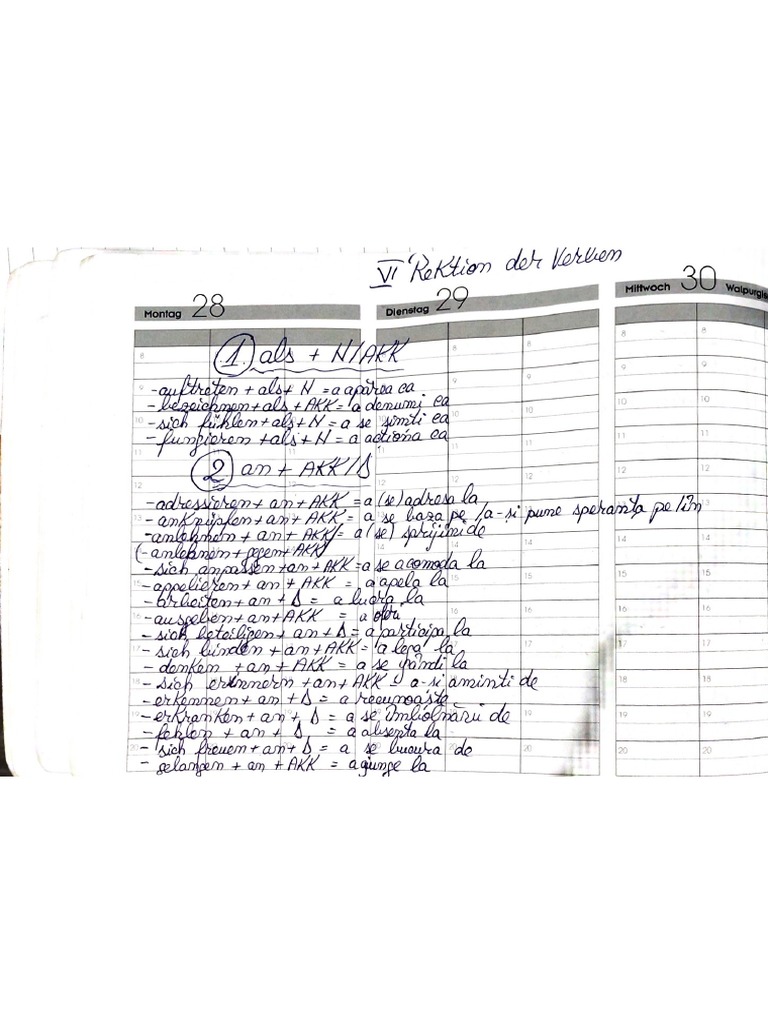 VI Rektion der Verben
Montag 28
Dienstag 29
Mittwoch 30 Walpurgis
1. als + N/AKK
- auftreten + als + N = a apărea ca
- bezeichnen + als + AKK = a denumi ca
- sich fühlen + als + N = a se simți ca
- fungieren + als + N = a acționa ca
2 an + AKK/D
- adressieren + an + AKK = a (se) adresa la
- anknüpfen + an + AKK = a se baza pe /a-și pune speranța pe/în
- anlehnen + an + AKK = a (se) sprijini de
(- anlehnen + gegen + AKK)
- sich anpassen + an + AKK = a se acomoda la
- appelieren + an + AKK = a apela la
- arbeiten + an + D = a lucra la
- ausgeben + an + AKK = a
- sich beteiligen + an + D = a participa la
- sich binden + an + AKK = a lega la
- denken + an + AKK = a se gândi la
- sich erinnern + an + AKK = a-și aminti de
- erkennen + an + D = a recunoaște
- erkranken + an + D = a se îmbolnăvi de
- fehlen + an + D = a absenta la
- sich freuen + an + D = a se bucura de
- gelangen + an + AKK = a ajunge la